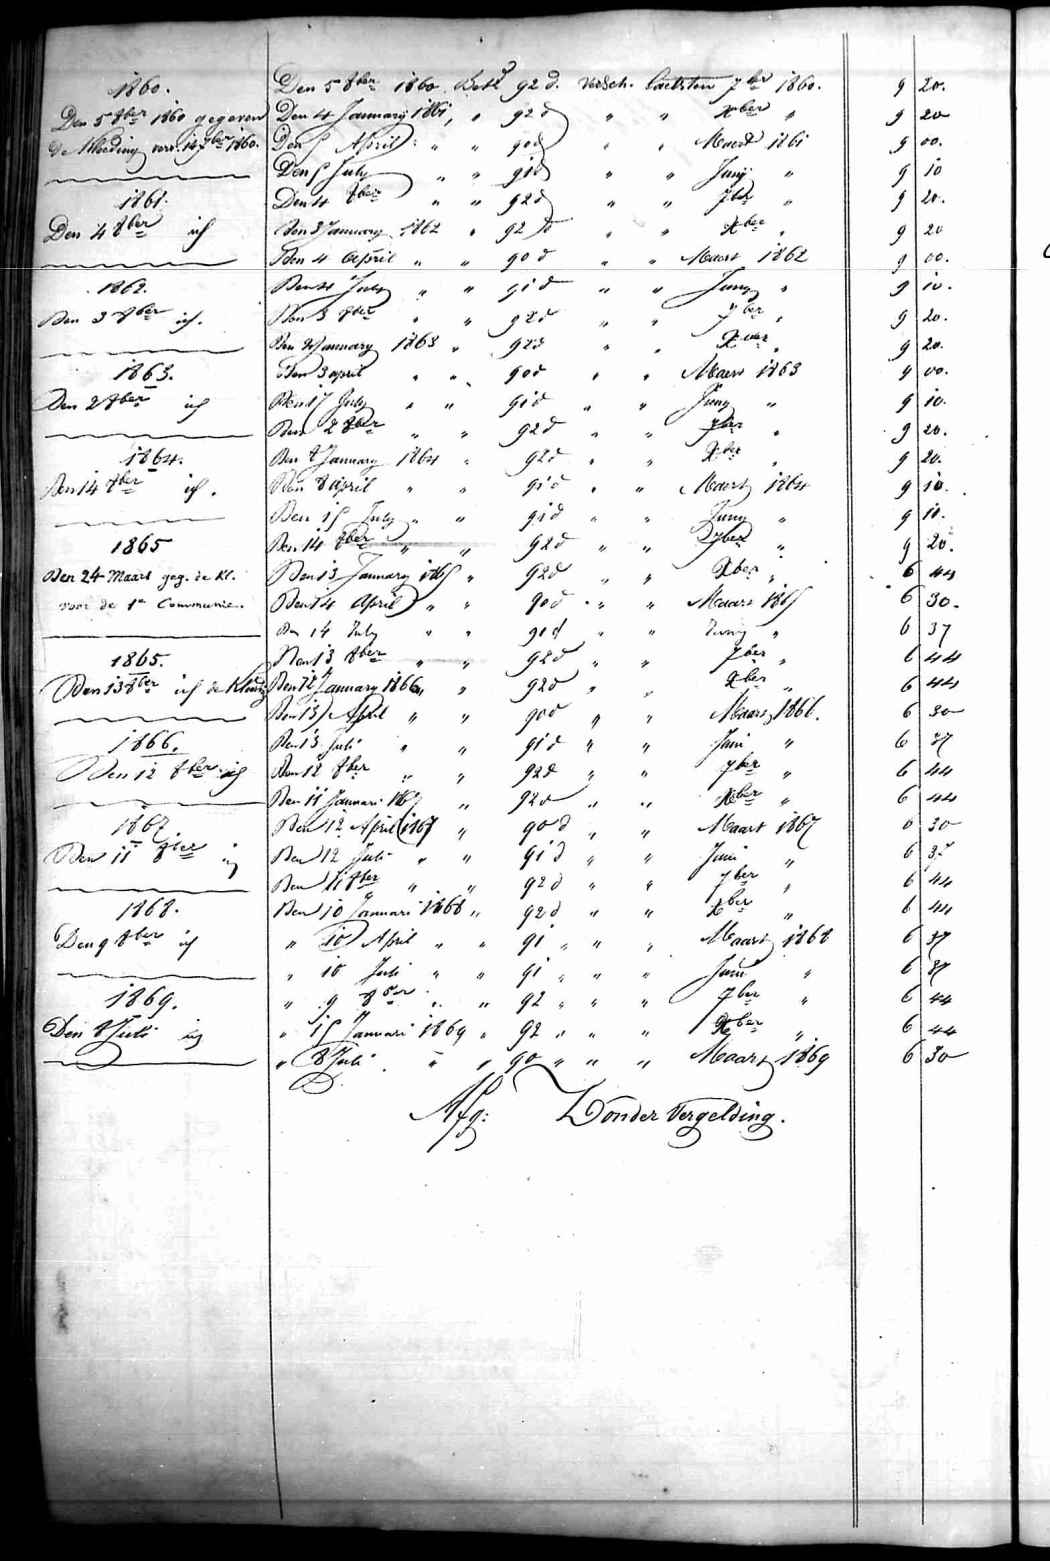 1860.
Den 5 8ber 1860 gegeven
de Kleeding verv. 14 7ber 1860.
1861.
Den 4 8ber id
1862.
Den 3 8ber id.
1863.
Den 2 8ber id
1864.
Den 14 8ber id.
1865
Den 24 Maart geg. de Kl.
voor de 1e Communie.
1865.
Den 13 8ber id de Kleeding
1866.
Den 12 8ber id
1867
Den 11 8ber id
1868.
Den 9 8ber id
1869.
Den 8 Juli id
Den 5 8ber 1860 Betd 92 d. Versch. laetsten 7ber 1860. 9 20.
Den 4 January 1861, " 92 d " " Xber " 9 20
Den 5 April " " 90 d " " Maert 1861 9 00.
Den 5 July " " 91 d " " Juny " 9 10
Den 4 8ber " " 92 d " " 7ber " 9 20.
Den 3 January 1862 " 92 d " " Xber " 9 20
Den 4 April " " 90 d " " Maert 1862 9 00.
Den 4 July " " 91 d " " Juny " 9 10.
Den 3 8ber " " 92 d " " 7ber " 9 20.
Den 2 January 1863 " 92 d " " Xber " 9 20.
Den 3 april " " 90 d " " Maert 1863 9 00.
Den 17 July " " 91 d " " Juny " 9 10.
Den 2 8ber " " 92 d " " 7ber " 9 20.
Den 8 January 1864 " 92 d " " Xber " 9 20.
Den 8 april " " 91 d " " Maert 1864 9 10.
Den 15 July " " 91 d " " Juny " 9 10.
Den 14 8ber " " 92 d " " 7ber " 9 20.
Den 13 January 1865 " 92 d " " Xber " 6 44
Den 14 April " " 90 d " " Maart 1865 6 30.
Den 14 July " " 91 d " " Juny " 6 37
Den 13 8ber " " 92 d " " 7ber " 6 44
Den 12 January 1866 " " 92 d " " Xber " 6 44
Den 13 April " " 90 d " " Maart 1866. 6 30
Den 13 Juli " " 91 d " " Juni " 6 37
Den 12 8ber " " 92 d " " 7ber " 6 44
Den 11 Januari 1867 " 92 d " " Xber " 6 44
Den 12 April 1867 " 90 d " " Maart 1867 6 30
Den 12 Juli " " 91 d " " Juni " 6 37
Den 11 8ber " " 92 d " " 7ber " 6 44
Den 10 Januari 1868 " 92 d " " Xber " 6 44
" 10 April " " 91 " " " Maart 1868 6 37
" 10 Juli " " 91 " " " Juni " 6 37
" 9 8ber " " 92 " " " 7ber " 6 44
" 15 Januari 1869 " 92 " " " Xber " 6 44
" 8 Juli " " 90 " " " Maart 1869 6 30
Afg: Zonder Vergelding.